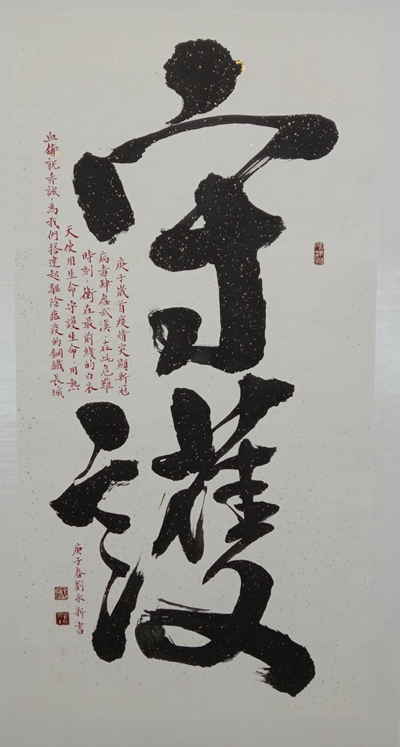 守護
庚子歲首疫情突顯新冠
病毒肆虐武漢在此危難
時刻衝在最前綫的白衣
天使用生命守護生命用熱
血鑄就赤誠為我們搭建起驅除瘟疫的鋼鐵長城
庚子春劉永新書